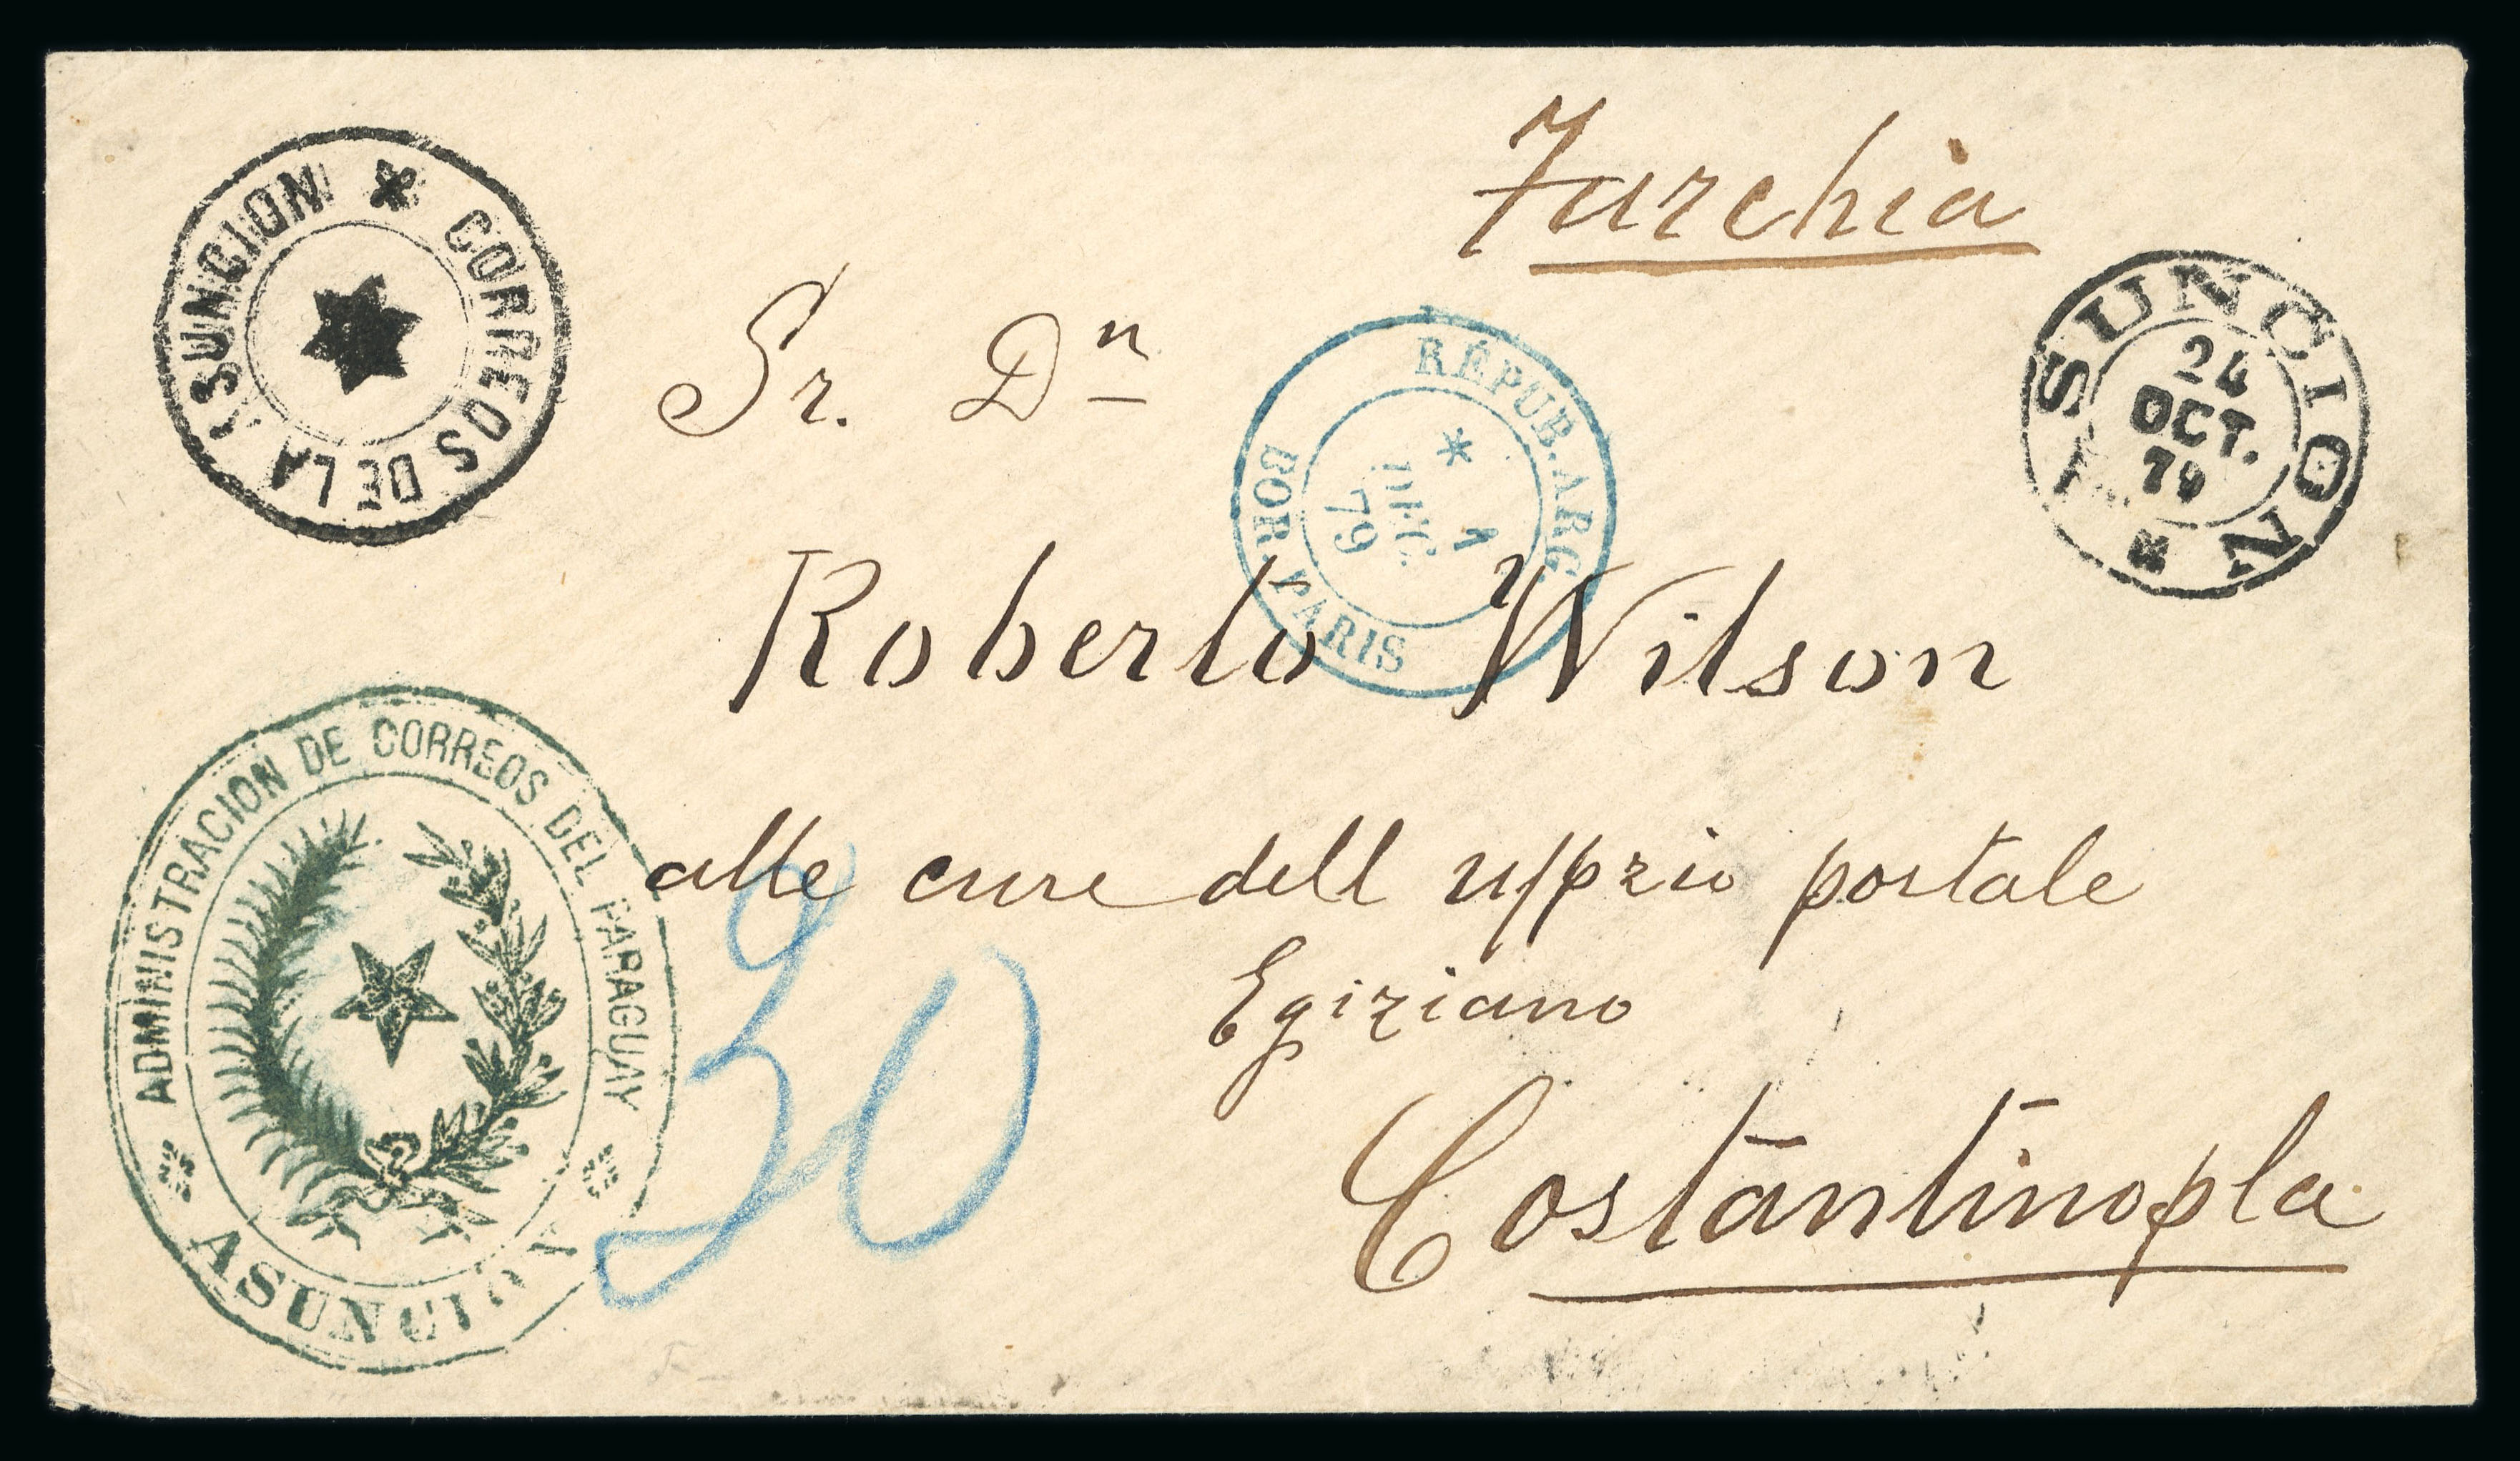 Turchia
CORREOS DE LA ASUNCION
ASUNCION
24
OCT.
79
Sr. Dn
RÉPUB. ARG.
DEC.
79
BOR. PARIS
Roberto Wilson
ADMINISTRACION DE CORREOS DEL PARAGUAY
ASUNCION
alle cure dell uffizio postale
Egiziano
30
Costantinopla